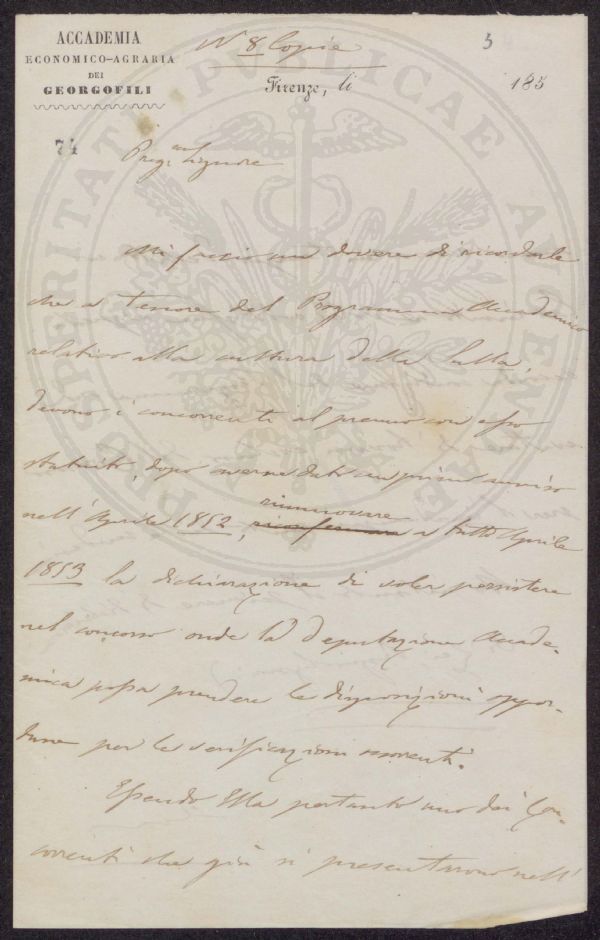 ACCADEMIA
ECONOMICO-AGRARIA
DEI
GEORGOFILI
N 8 Copie
3
Firenze, li 185
74
Preg. mo Signore
Mi faccio un dovere di ricordarle
che a tenore del Programma Accademico
relativo alla cultura della Sulla,
devono i concorrenti al premio con esso
statuito, dopo averne dato un primo avviso
nell'Aprile 1852, rinnovare a tutto Aprile
1853 la dichiarazione di voler persistere
nel concorso onde la Deputazione Accade-
mica possa prendere le disposizioni oppor-
tune per le verificazioni occorrenti.
Essendo Ella pertanto uno dei Con-
correnti che già si presentarono nell'
PROSPERITATI PUBLICAE AUGENDAE